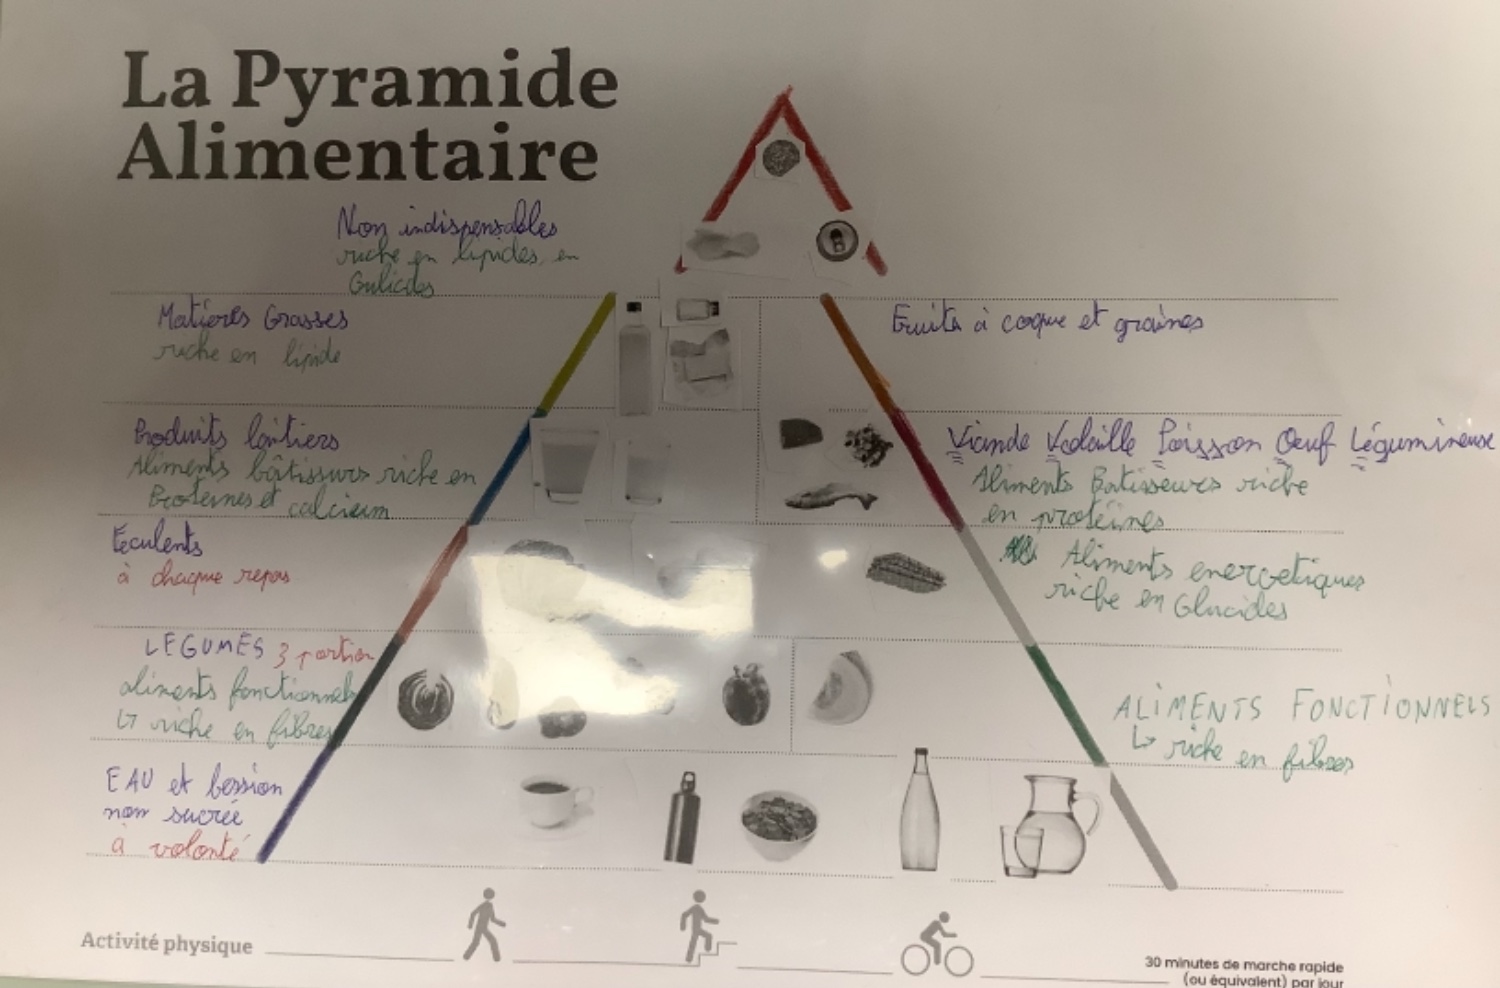 La Pyramide
Alimentaire
Non indispensables
riche en lipides, en
Gulicdes
Matières Grasses
riche en lipide
Fruits à coque et graines
Produits laitiers
Aliments bâtisseurs riche en
Proteines et calcium
Viande Volaille Poisson Oeuf Légumineuse
Aliments Batisseurs riche
en protéines
Féculents
à chaque repas
Aliments energetiques
riche en Glucides
LEGUMES 3 portion
aliments fonctionnels
↳ riche en fibres
ALIMENTS FONCTIONNELS
↳ riche en fibres
EAU et boission
non sucrée
à volonté
Activité physique
30 minutes de marche rapide
(ou équivalent) par jour